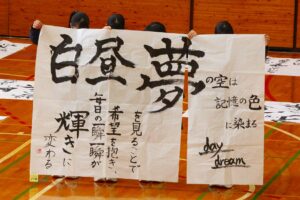 白昼夢
の空は
記憶の色
に染まる
day
dream
を見ることで
希望を抱き、
毎日の一瞬一瞬が
輝きに
変わる